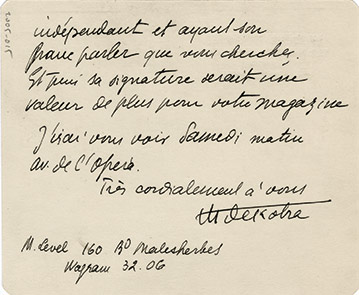 indépendant et ayant son
franc parler que vous cherchez.
Et puis sa signature serait une
valeur de plus pour votre magazine
J'irai vous voir Samedi matin
av. de l'Opera.
Très cordialement à vous
MDekobra
M. Level 160 Bd Malesherbes
Wagram 32.06